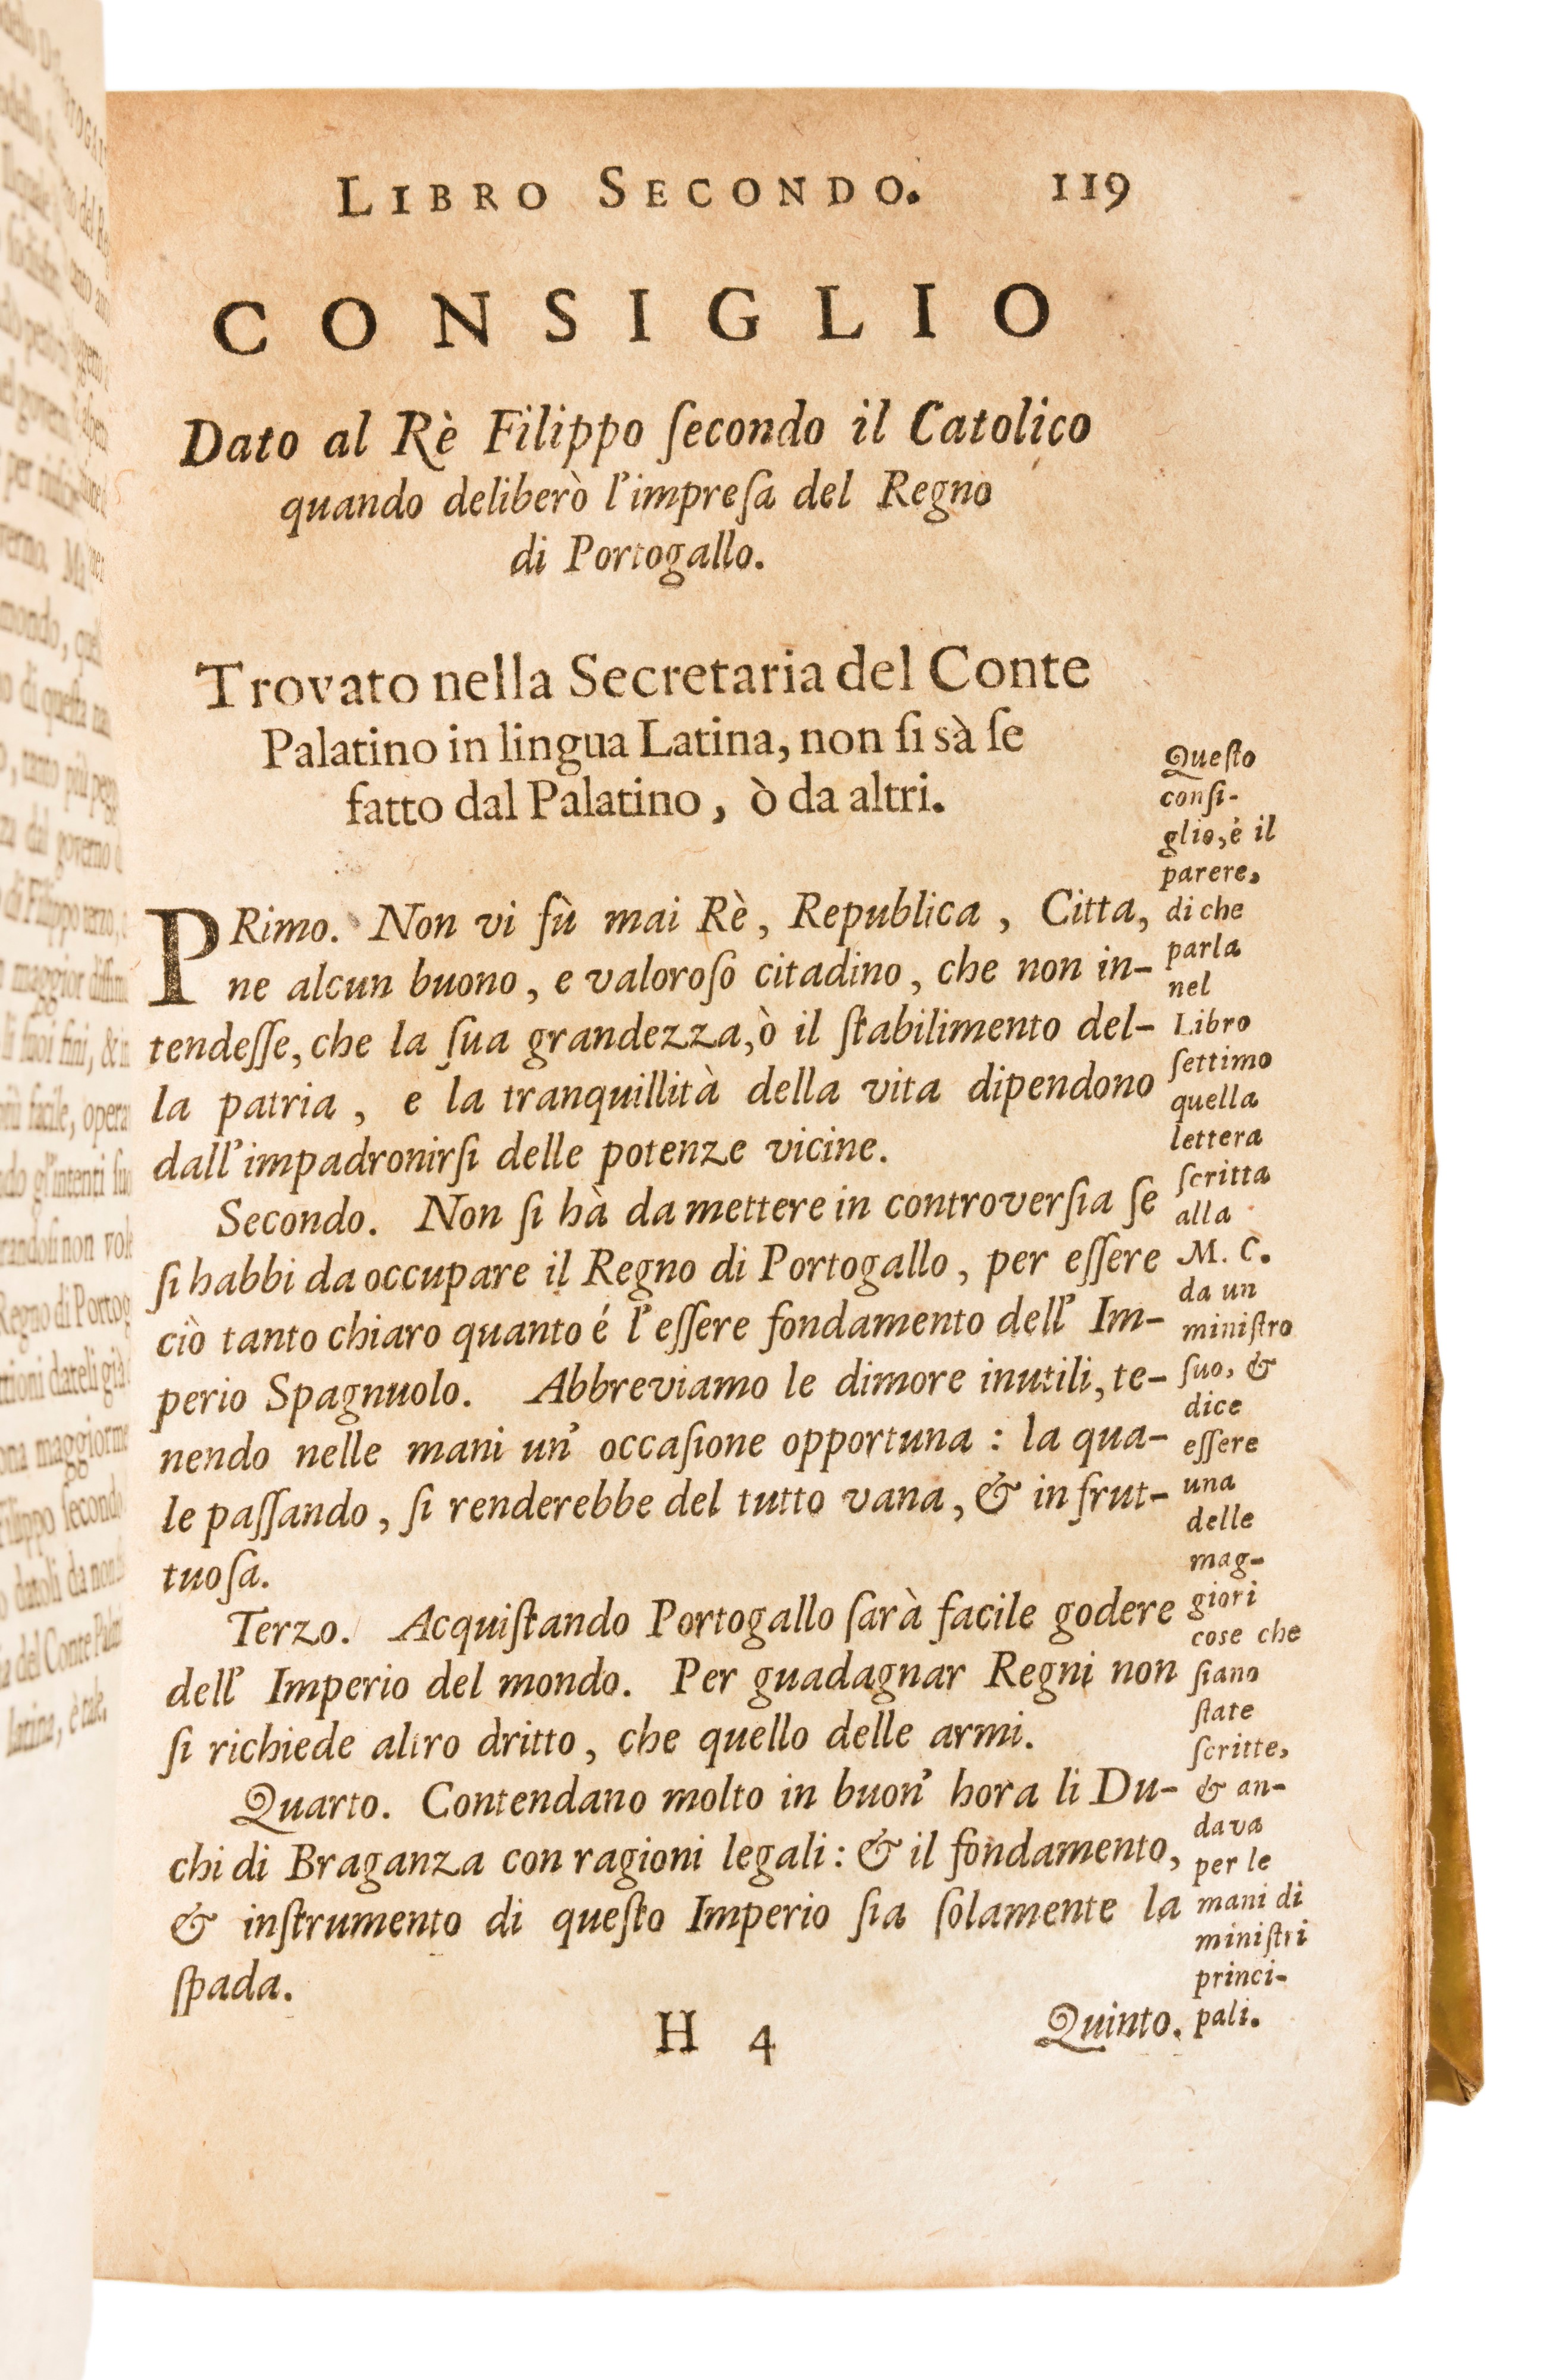 LIBRO SECONDO. 119
CONSIGLIO
Dato al Rè Filippo ſecondo il Catolico
quando deliberò l'impreſa del Regno
di Portogallo.
Trovato nella Secretaria del Conte
Palatino in lingua Latina, non ſi sà ſe
fatto dal Palatino, ò da altri.
PRimo. Non vi fù mai Rè, Republica, Citta,
ne alcun buono, e valoroſo citadino, che non in-
tendeſſe, che la ſua grandezza, ò il ſtabilimento del-
la patria, e la tranquillità della vita dipendono
dall'impadronirſi delle potenze vicine.
Secondo. Non ſi hà da mettere in controverſia ſe
ſi habbi da occupare il Regno di Portogallo, per eſſere
ciò tanto chiaro quanto é l'eſſere fondamento dell' Im-
perio Spagnuolo. Abbreviamo le dimore inutili, te-
nendo nelle mani un' occaſione opportuna : la qua-
le paſſando, ſi renderebbe del tutto vana, & infrut-
tuoſa.
Terzo. Acquiſtando Portogallo ſarà facile godere
dell' Imperio del mondo. Per guadagnar Regni non
ſi richiede altro dritto, che quello delle armi.
Quarto. Contendano molto in buon' hora li Du-
chi di Braganza con ragioni legali : & il fondamento,
& inſtrumento di queſto Imperio ſia ſolamente la
ſpada.
H 4 Quinto.
Queſto
conſi-
glio, é il
parere,
di che
parla
nel
Libro
ſettimo
quella
lettera
ſcritta
alla
M. C.
da un
miniſtro
ſuo, &
dice
eſſere
una
delle
mag-
giori
coſe che
ſiano
ſtate
ſcritte,
& an-
dava
per le
mani di
miniſtri
princi-
pali.